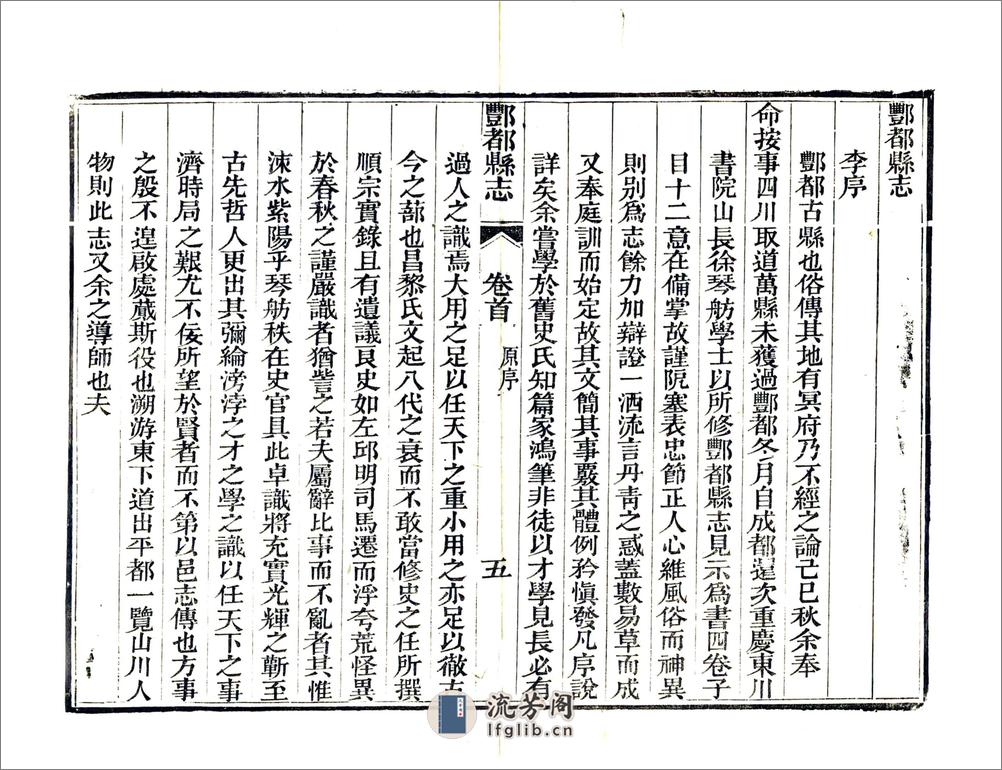 酆都縣志
李序
酆都古縣也俗傳其地有冥府乃不經之論己巳秋余奉
命按事四川取道萬縣未獲過酆都冬月自成都還次重慶東川
書院山長徐琴舫學士以所修酆都縣志見示為書四卷子
目十二意在備掌故謹阨塞表忠節正人心維風俗而神異
則別為志餘力加辯證一洒流言丹青之惑蓋數易草而成
又奉庭訓而始定故其文簡其事覈其體例矜慎發凡序說
詳矣余嘗學於舊史氏知篇家鴻筆非徒以才學見長必有
酆都縣志
卷首
原序
五
過人之識焉大用之足以任天下之重小用之亦足以徹古
今之蔀也昌黎氏文起八代之衰而不敢當修史之任所撰
順宗實錄且有遺議良史如左邱明司馬遷而浮夸荒怪異
於春秋之謹嚴識者猶訾之若夫屬辭比事而不亂者其惟
涑水紫陽乎琴舫秩在史官具此卓識將充實光輝之蘄至
古先哲人更出其彌綸滂浡之才之學之識以任天下之事
濟時局之艱尤不佞所望於賢者而不第以邑志傳也方事
之殷不遑啟處蕆斯役也溯游東下道出平都一覽山川人
物則此志又余之導師也夫
流芳阁
lfglib.cn